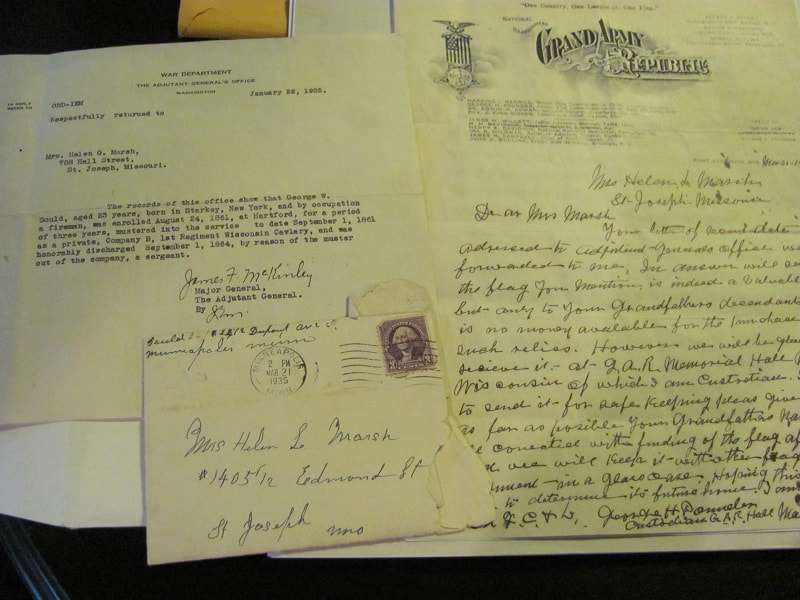 WAR DEPARTMENT
THE ADJUTANT GENERAL'S OFFICE
WASHINGTON
IN REPLY
REFER TO
ORD-IEM
January 22, 1935.
Respectfully returned to
Mrs. Helen G. Marsh,
708 Hall Street,
St. Joseph, Missouri.
The records of this office show that George W.
Gould, aged 23 years, born in Starkey, New York, and by occupation
a fireman, was enrolled August 24, 1861, at Hartford, for a period
of three years, mustered into the service to date September 1, 1861
as a private, Company B, 1st Regiment Wisconsin Cavlary, and was
honorably discharged September 1, 1864, by reason of the muster
out of the company, a sergeant.
James F. McKinley
Major General,
The Adjutant General.
By
Dupont ave
Minneapolis Minn
MINNEAPOLIS
2 PM
MAR 21
1935
MINN
Mrs Helen L Marsh
#1405 1/2 Edmond St
St Joseph
Mo
"One Country, One Language, One Flag."
NATIONAL
GRAND ARMY
REPUBLIC
Mar-21-19
Mrs Helen L Marsh
St Joseph Missouri
Dear Mrs Marsh
Your letter of recent date
adressed to Adjutand-Generals Office w
forwarded to me, In answer will s
the flag you mention, is indeed a valuable
but only to your Grandfathers descendants
is no money available for the purchase
such relics. However we will be glad
recieve it at G.A.R. Memorial Hall
Wisconsin of which I am Custodian.
to send it for safe keeping pleas give
as far as posible your Grandfathers
conected with finding of the flag
we will keep it with other flag
in a glass case. Hoping this
to determine its future home. I am
F. C. & L. George H.
Custodian G.A.R. Hall Ma